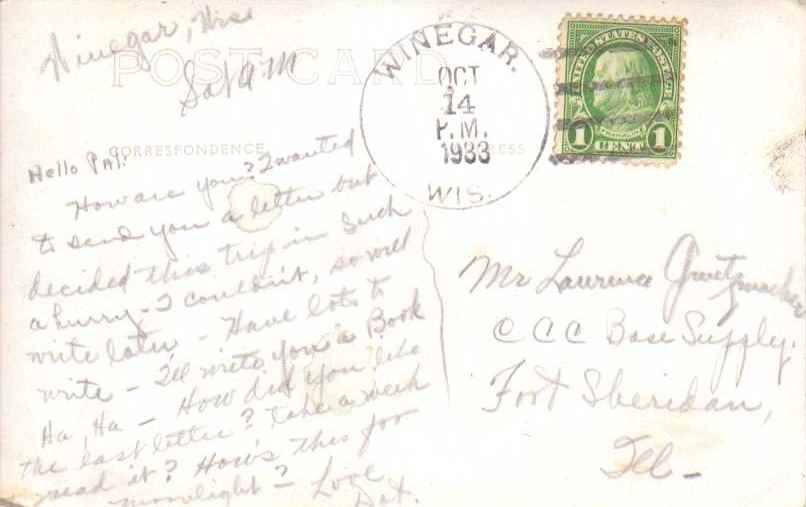 Winegar, Wis
Sat AM
POST CARD
CORRESPONDENCE
Hello Pal:
How are you? I wanted
to send you a letter but
decided this trip in such
a hurry - I couldn't, so will
write later - Have lots to
write - I'll write you a Book
Ha, Ha - How did you like
the last letter? Take a week
read it? How's this for
moonlight? - Love
Dot.
WINEGAR.
OCT
14
P.M.
1933
WIS.
UNITED STATES POSTAGE
FRANKLIN
1 CENT 1
Mr Laurence Gruetzmacher
C C C Base Supply.
Fort Sheridan,
Ill -